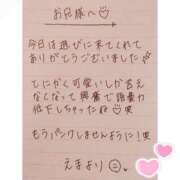 お兄様へ
今日は遊びに来てくれて
ありがとうございました
とにかく可愛いしか言え
なくなって興奮で語彙力
低下しちゃったね 笑
もうパンクしませんように!笑
えまより